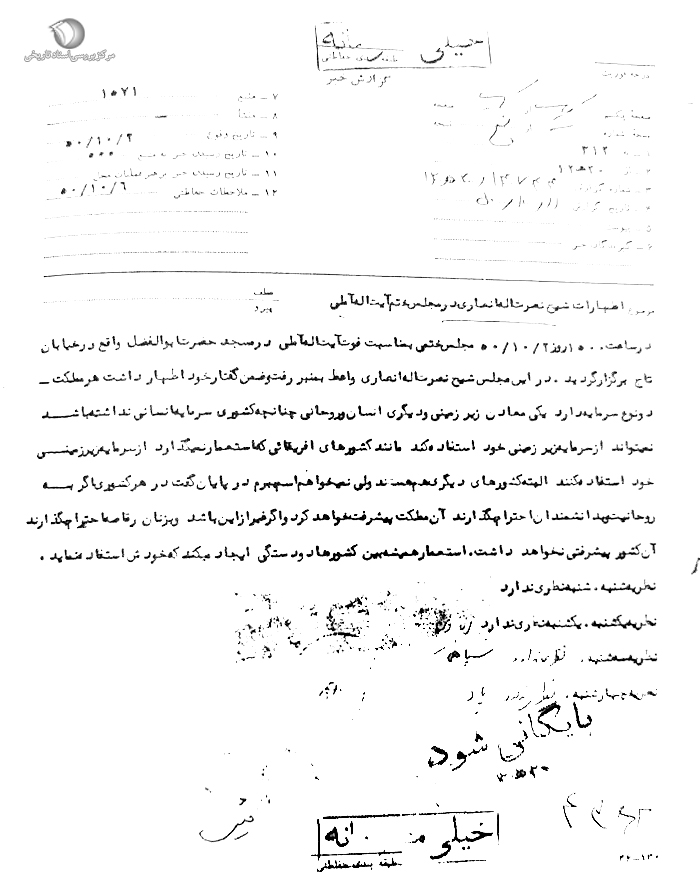 مرکز بررسی اسناد تاریخی
خیلی محرمانه
طبقه بندی حفاظتی
گزارش خبر
۷ - منبع ۱۵۷۱
۸ - منشأ
۹ - تاریخ وقوع ۵۰/۱۰/۲
۱۰ - تاریخ رسیدن خبر به منبع ۵۰۰
۱۱ - تاریخ رسیدن خبر برهبر عملیات محل
۱۲ - ملاحظات حفاظتی ۵۰/۱۰/۶
۳۱۲
۲۰ه۱۲
موضوع اظهارات شیخ نصرت اله انصاری در مجلس ختم آیت اله آملی
عطف
پیرو
در ساعت ۱۵۰۰ روز ۵۰/۱۰/۲ مجلس ختمی بمناسبت فوت آیت اله آملی در مسجد حضرت ابوالفضل واقع در خیابان
تاج برگزار گردید . در این مجلس شیخ نصرت اله انصاری واعظ بمنبر رفت وضمن گفتار خود اظهار داشت هر مملکت -
دونوع سرمایه دارد یکی معادن زیر زمینی ودیگری انسان وروحانی چنانچه کشوری سرمایه انسانی نداشته باشد
نمیتواند از سرمایه زیر زمینی خود استفاده کند مانند کشورهای افریقائی که استعمار نمیگذارد از سرمایه زیر زمینی
خود استفاده کنند البته کشورهای دیگری هم هستند ولی نمیخواهم اسم ببرم در پایان گفت در هر کشوری اگر به
روحانیت ودانشمندان احترام بگذارند آن مملکت پیشرفت خواهد کرد واگر غیر از این باشد وبزنان رقاصه احترام بگذارند
آن کشور پیشرفتی نخواهد داشت . استعمار همیشه بین کشورها دو دستگی ایجاد میکند که خودش استفاده نماید .
نظریه شنبه . شنبه نظری ندارد
نظریه یکشنبه . یکشنبه نظری ندارد
نظریه سه شنبه . نظری ندارد
نظریه چهارشنبه . نظری ندارد
بایگانی شود
۲۰ه۳
خیلی محرمانه
طبقه بندی حفاظتی
۲۴-۱۳۰